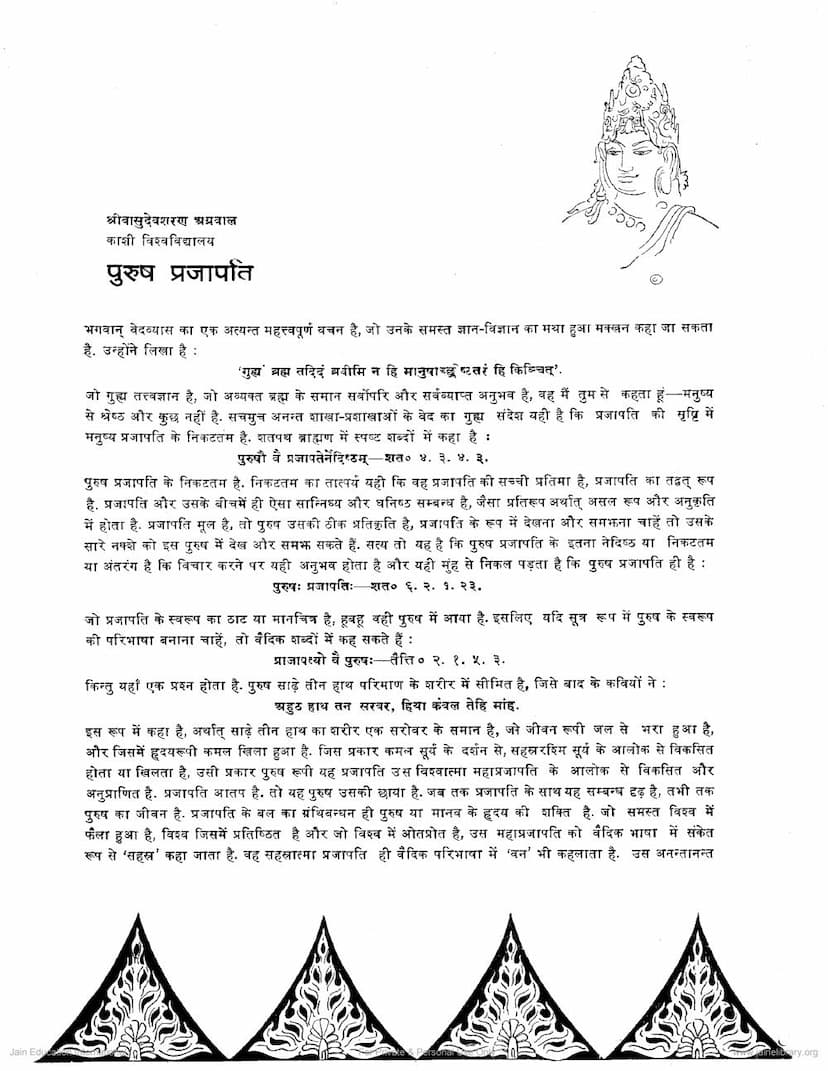 श्रीवासुदेवशरण अग्रवाल
काशी विश्वविद्यालय
पुरुष प्रजापति
भगवान् वेदव्यास का एक अत्यन्त महत्त्वपूर्ण वचन है, जो उनके समस्त ज्ञान-विज्ञान का मथा हुआ मक्खन कहा जा सकता
है. उन्होंने लिखा है :
'गुह्यं ब्रह्म तदिदं ब्रवीमि न हि मानुषाच्छ्रेष्ठतरं हि किञ्चित्'.
जो गुह्य तत्त्वज्ञान है, जो अव्यक्त ब्रह्म के समान सर्वोपरि और सर्वव्याप्त अनुभव है, वह मैं तुम से कहता हूं—मनुष्य
से श्रेष्ठ और कुछ नहीं है. सचमुच अनन्त शाखा-प्रशाखाओं के वेद का गुह्य संदेश यही है कि प्रजापति की सृष्टि में
मनुष्य प्रजापति के निकटतम है. शतपथ ब्राह्मण में स्पष्ट शब्दों में कहा है :
पुरुषौ वै प्रजापतेर्नेदिष्ठम्—शत० ४. ३. ४. ३.
पुरुष प्रजापति के निकटतम है. निकटतम का तात्पर्य यही कि वह प्रजापति की सच्ची प्रतिमा है, प्रजापति का तद्वत् रूप
है. प्रजापति और उसके बीचमें ही ऐसा सान्निध्य और घनिष्ठ सम्बन्ध है, जैसा प्रतिरूप अर्थात् असल रूप और अनुकृति
में होता है. प्रजापति मूल है, तो पुरुष उसकी ठीक प्रतिकृति है, प्रजापति के रूप में देखना और समझना चाहें तो उसके
सारे नक्शे को इस पुरुष में देख और समझ सकते हैं. सत्य तो यह है कि पुरुष प्रजापति के इतना नेदिष्ठ या निकटतम
या अंतरंग है कि विचार करने पर यही अनुभव होता है और यही मुंह से निकल पड़ता है कि पुरुष प्रजापति ही है :
पुरुषः प्रजापतिः—शत० ६. २. १. २३.
जो प्रजापति के स्वरूप का ठाट या मानचित्र है, हूबहू वही पुरुष में आया है. इसलिए यदि सूत्र रूप में पुरुष के स्वरूप
की परिभाषा बनाना चाहें, तो वैदिक शब्दों में कह सकते हैं :
प्राजापत्यो वै पुरुषः—तैत्ति० २. १. ५. ३.
किन्तु यहाँ एक प्रश्न होता है. पुरुष साढ़े तीन हाथ परिमाण के शरीर में सीमित है, जिसे बाद के कवियों ने :
अहुठ हाथ तन सरवर, हिया कंवल तेहि मांह.
इस रूप में कहा है, अर्थात् साढ़े तीन हाथ का शरीर एक सरोवर के समान है, जो जीवन रूपी जल से भरा हुआ है,
और जिसमें हृदयरूपी कमल खिला हुआ है. जिस प्रकार कमल सूर्य के दर्शन से, सहस्ररश्मि सूर्य के आलोक से विकसित
होता या खिलता है, उसी प्रकार पुरुष रूपी यह प्रजापति उस विश्वात्मा महाप्रजापति के आलोक से विकसित और
अनुप्राणित है. प्रजापति आतप है. तो यह पुरुष उसकी छाया है. जब तक प्रजापति के साथ यह सम्बन्ध दृढ़ है, तभी तक
पुरुष का जीवन है. प्रजापति के बल का ग्रंथिबन्धन ही पुरुष या मानव के हृदय की शक्ति है. जो समस्त विश्व में
फैला हुआ है, विश्व जिसमें प्रतिष्ठित है और जो विश्व में ओतप्रोत है, उस महाप्रजापति को वैदिक भाषा में संकेत
रूप से 'सहस्र' कहा जाता है. वह सहस्रात्मा प्रजापति ही वैदिक परिभाषा में 'वन' भी कहलाता है. उस अनन्तानन्त